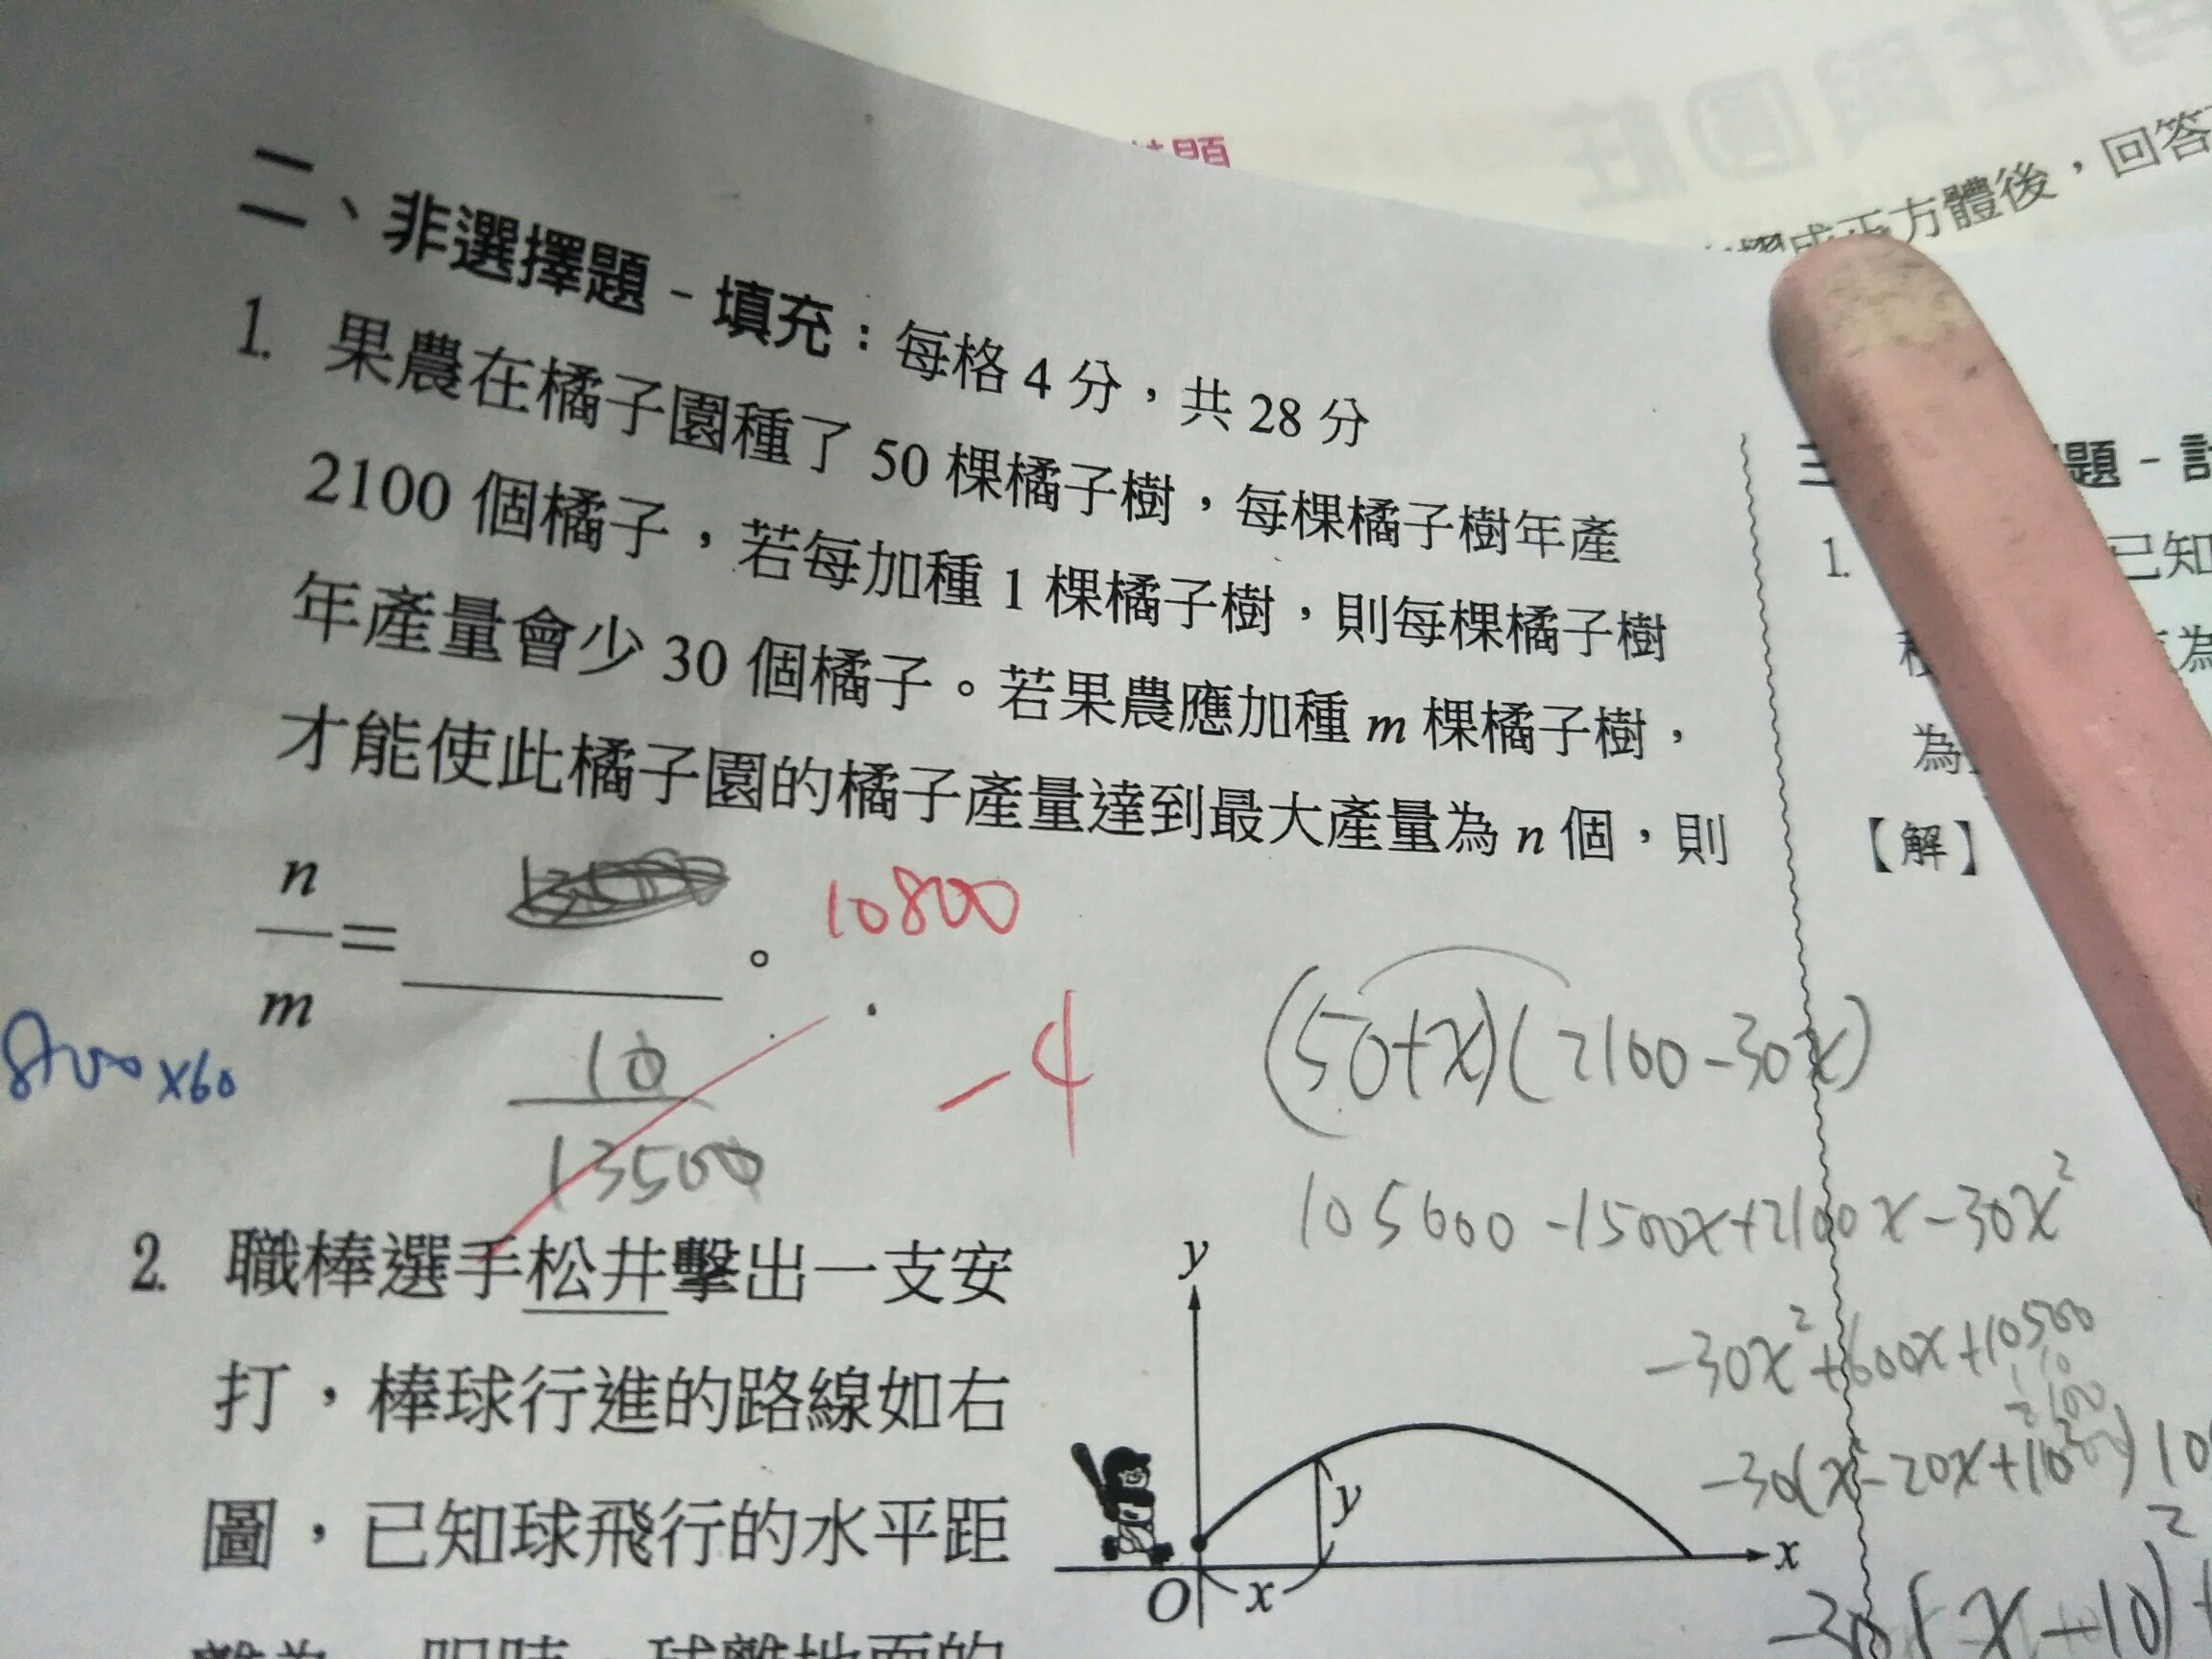 二、非選擇題-填充：每格4分，共28分
1. 果農在橘子園種了50棵橘子樹，每棵橘子樹年產
2100個橘子，若每加種1棵橘子樹，則每棵橘子樹
年產量會少30個橘子。若果農應加種m棵橘子樹，
才能使此橘子園的橘子產量達到最大產量為n個，則
n/m=
。
10800
10
13500
-4
x60
(50+x)(2100-30x)
105000-1500x+2100x-30x²
-30x²+600x+10500
2. 職棒選手松井擊出一支安
打，棒球行進的路線如右
圖，已知球飛行的水平距
y
y
O
x
x
題
成正方體後，回答
題-計
1.
已知
為
為
【解】